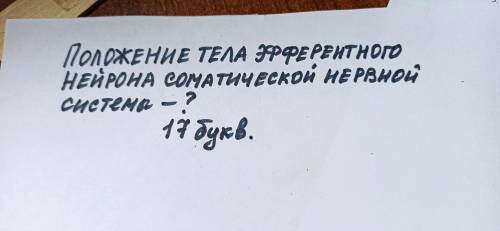 Положение тела эфферентного
нейрона соматической нервной
система – ?
17 букв.